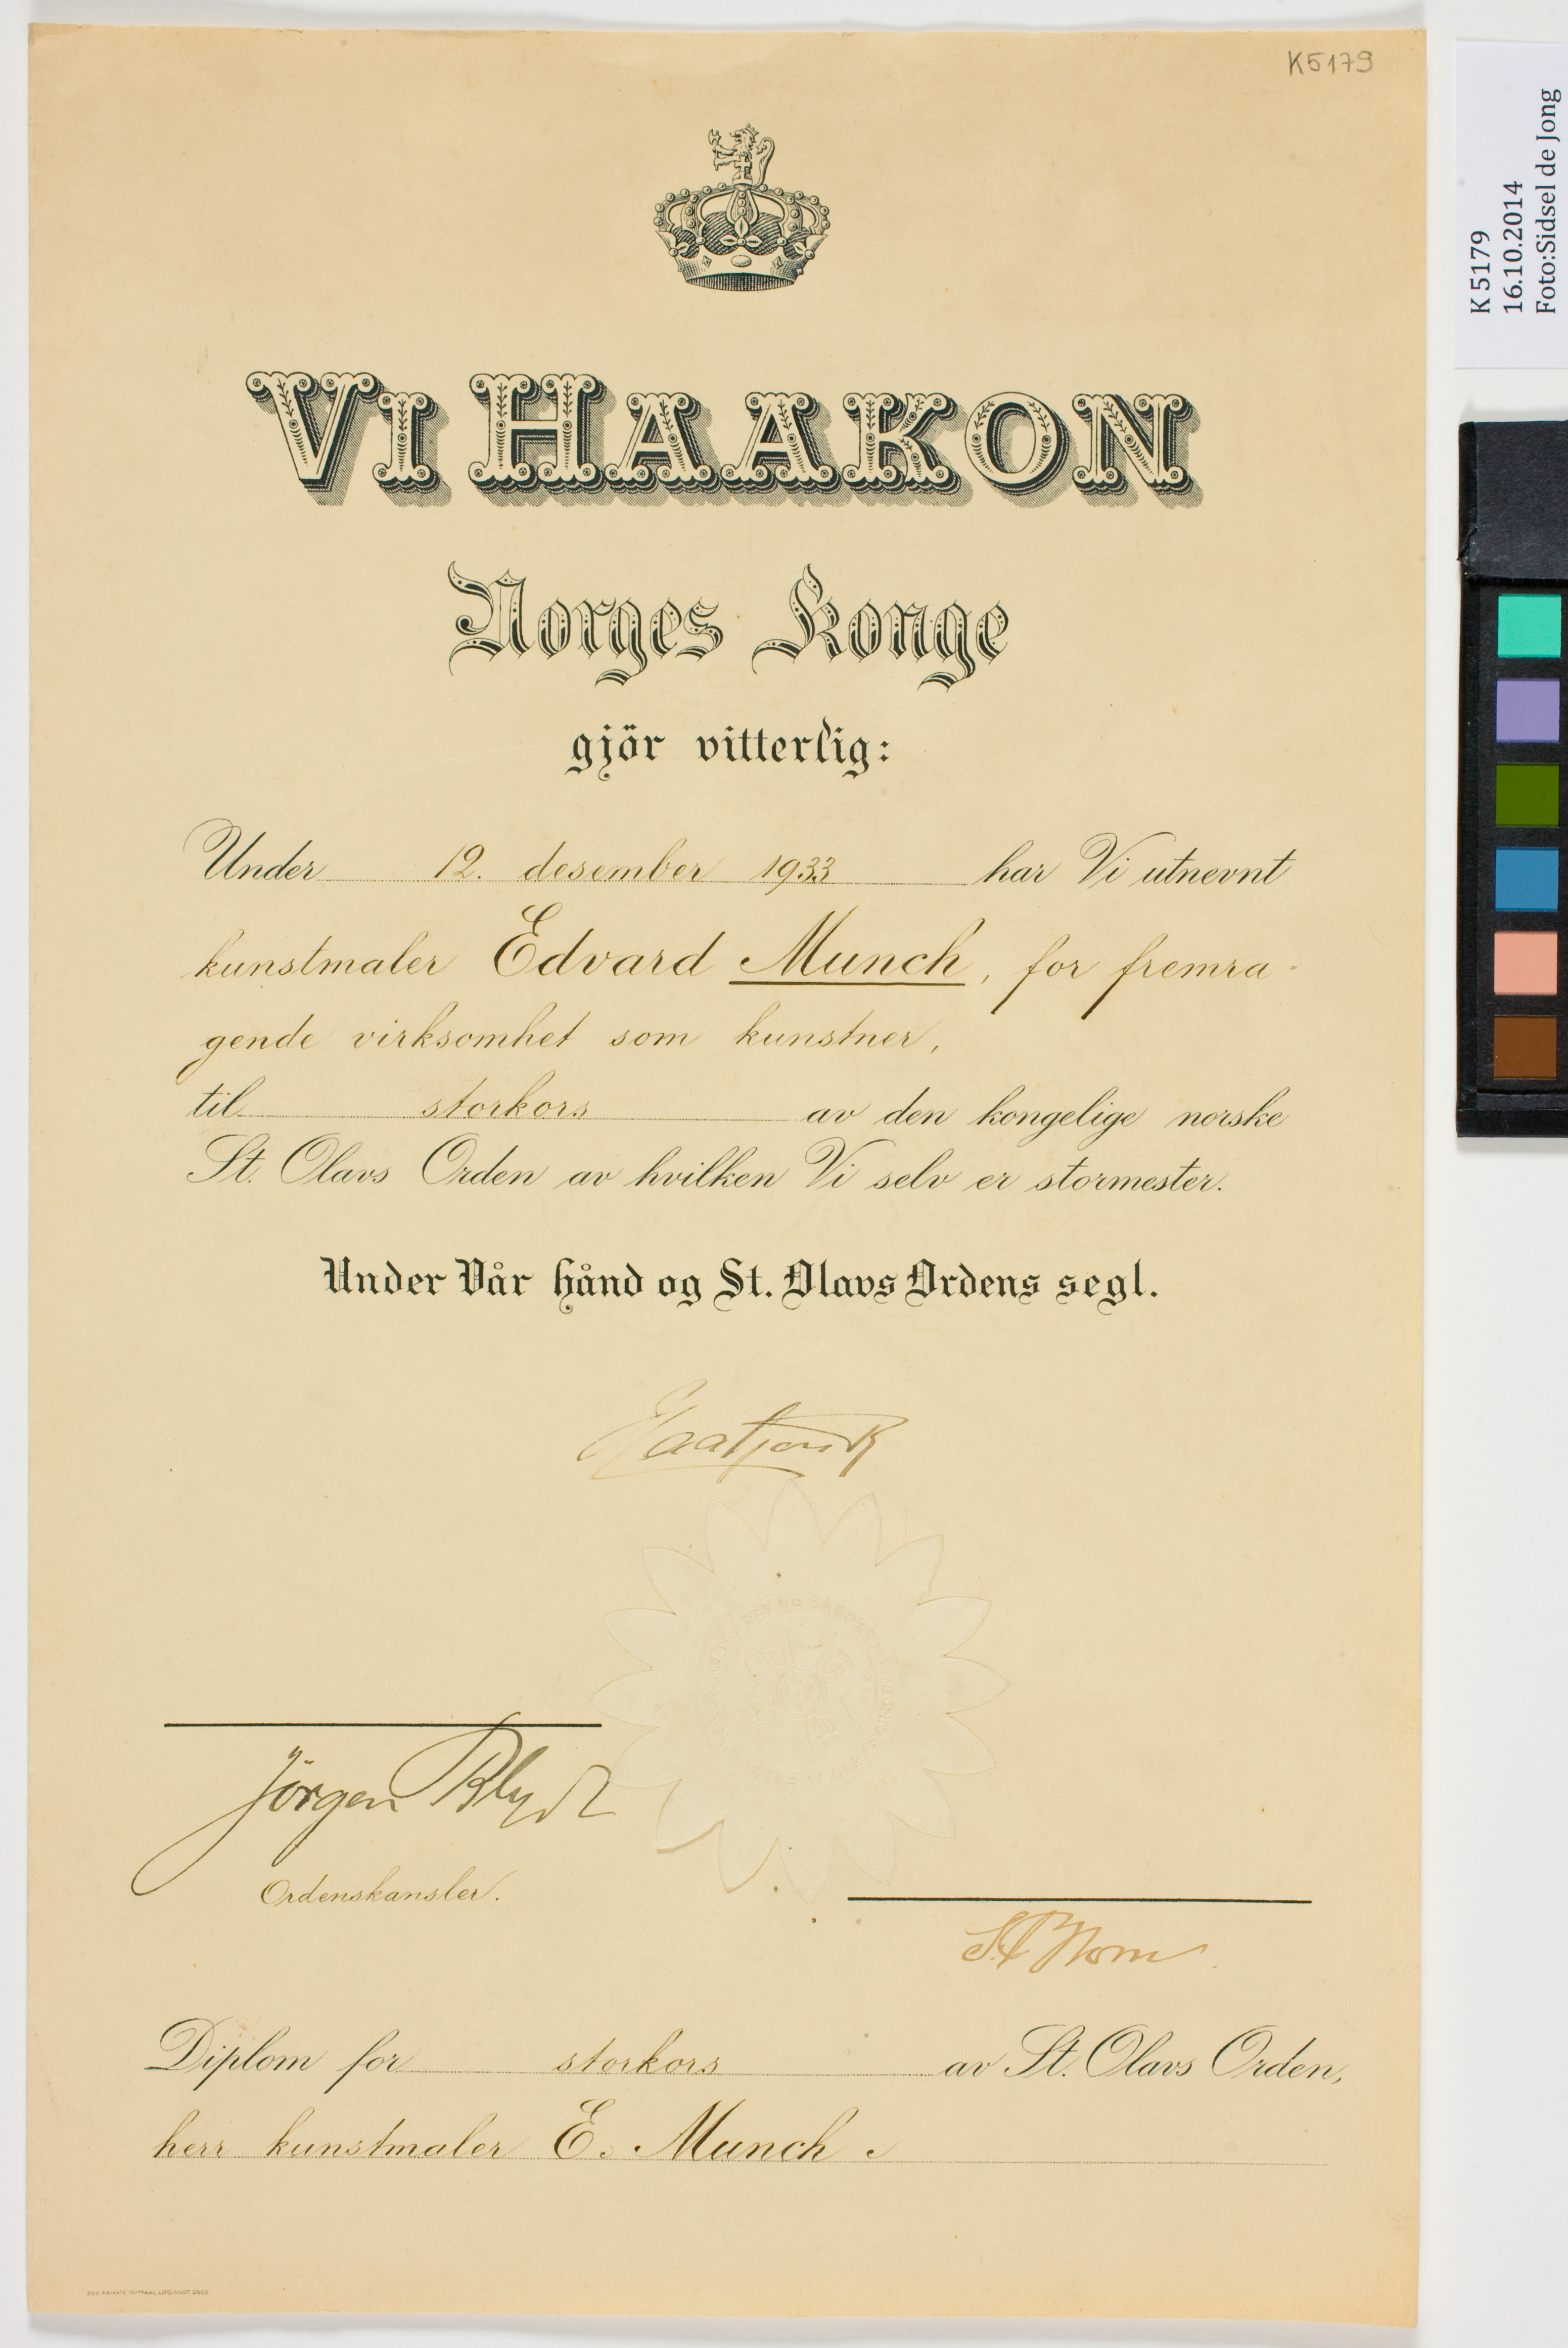 K5179
VI HAAKON
Norges Konge
gjör vitterlig:
Under 12. desember 1933 har Vi utnevnt
kunstmaler Edvard Munch, for fremra-
gende virksomhet som kunstner,
til storkors av den kongelige norske
St. Olavs Orden av hvilken Vi selv er stormester.
Under Vår hånd og St. Olavs Ordens segl.
Haakon R
Jörgen Blydt
Ordenskansler.
Diplom for storkors av St. Olavs Orden,
herr kunstmaler E. Munch.
K 5179
16.10.2014
Foto:Sidsel de Jong